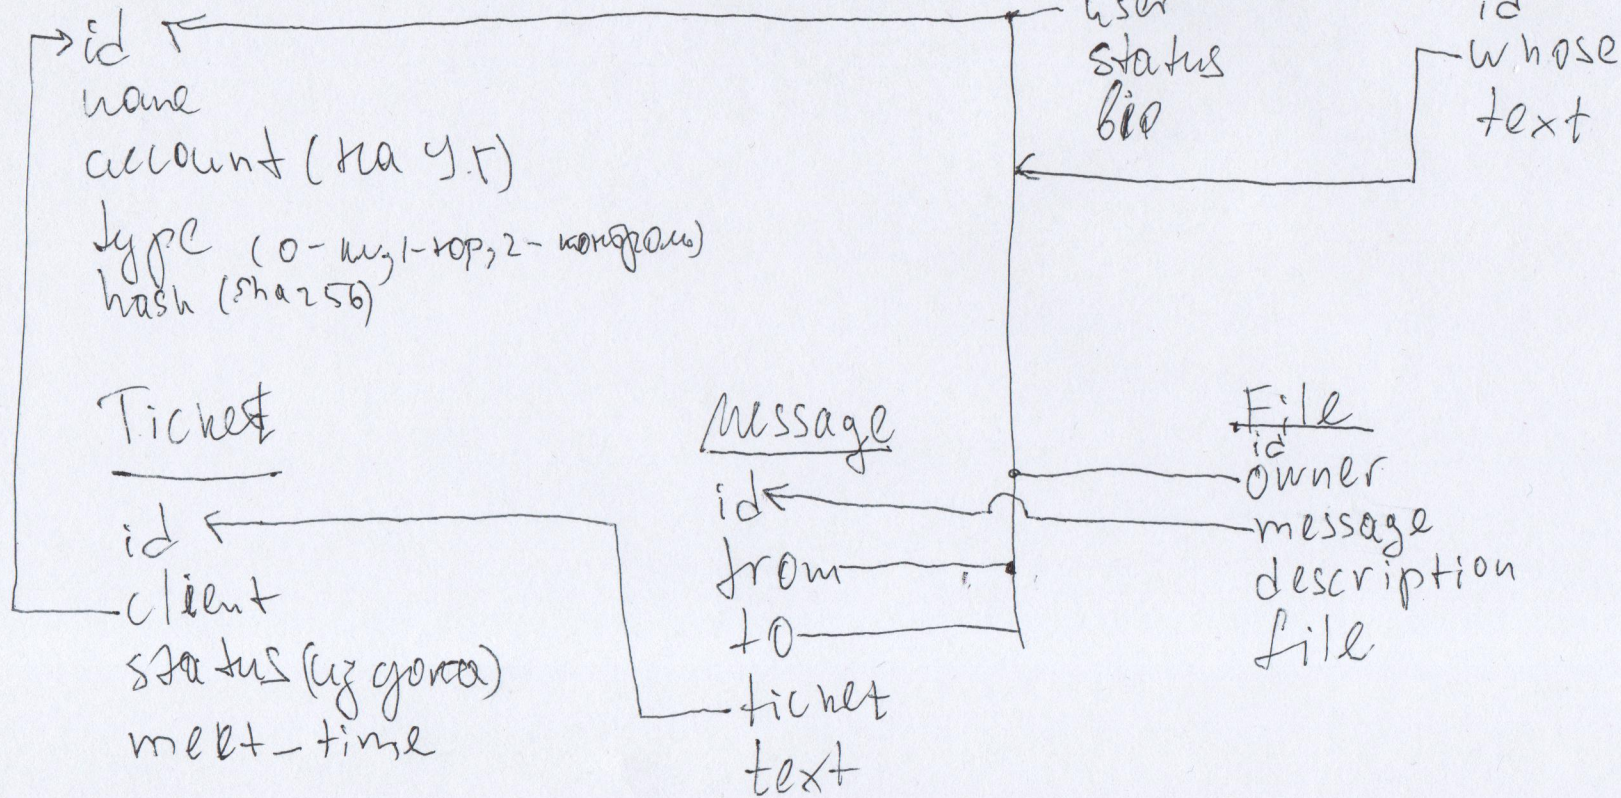 id
name
account (на У.Г)
type (0-кл, 1-юр, 2-
hash (sha256)
user
status
bio
id
whose
text
Ticket
id
client
status (из дока)
meet_time
Message
id
from
to
ticket
text
File
id
owner
message
description
file